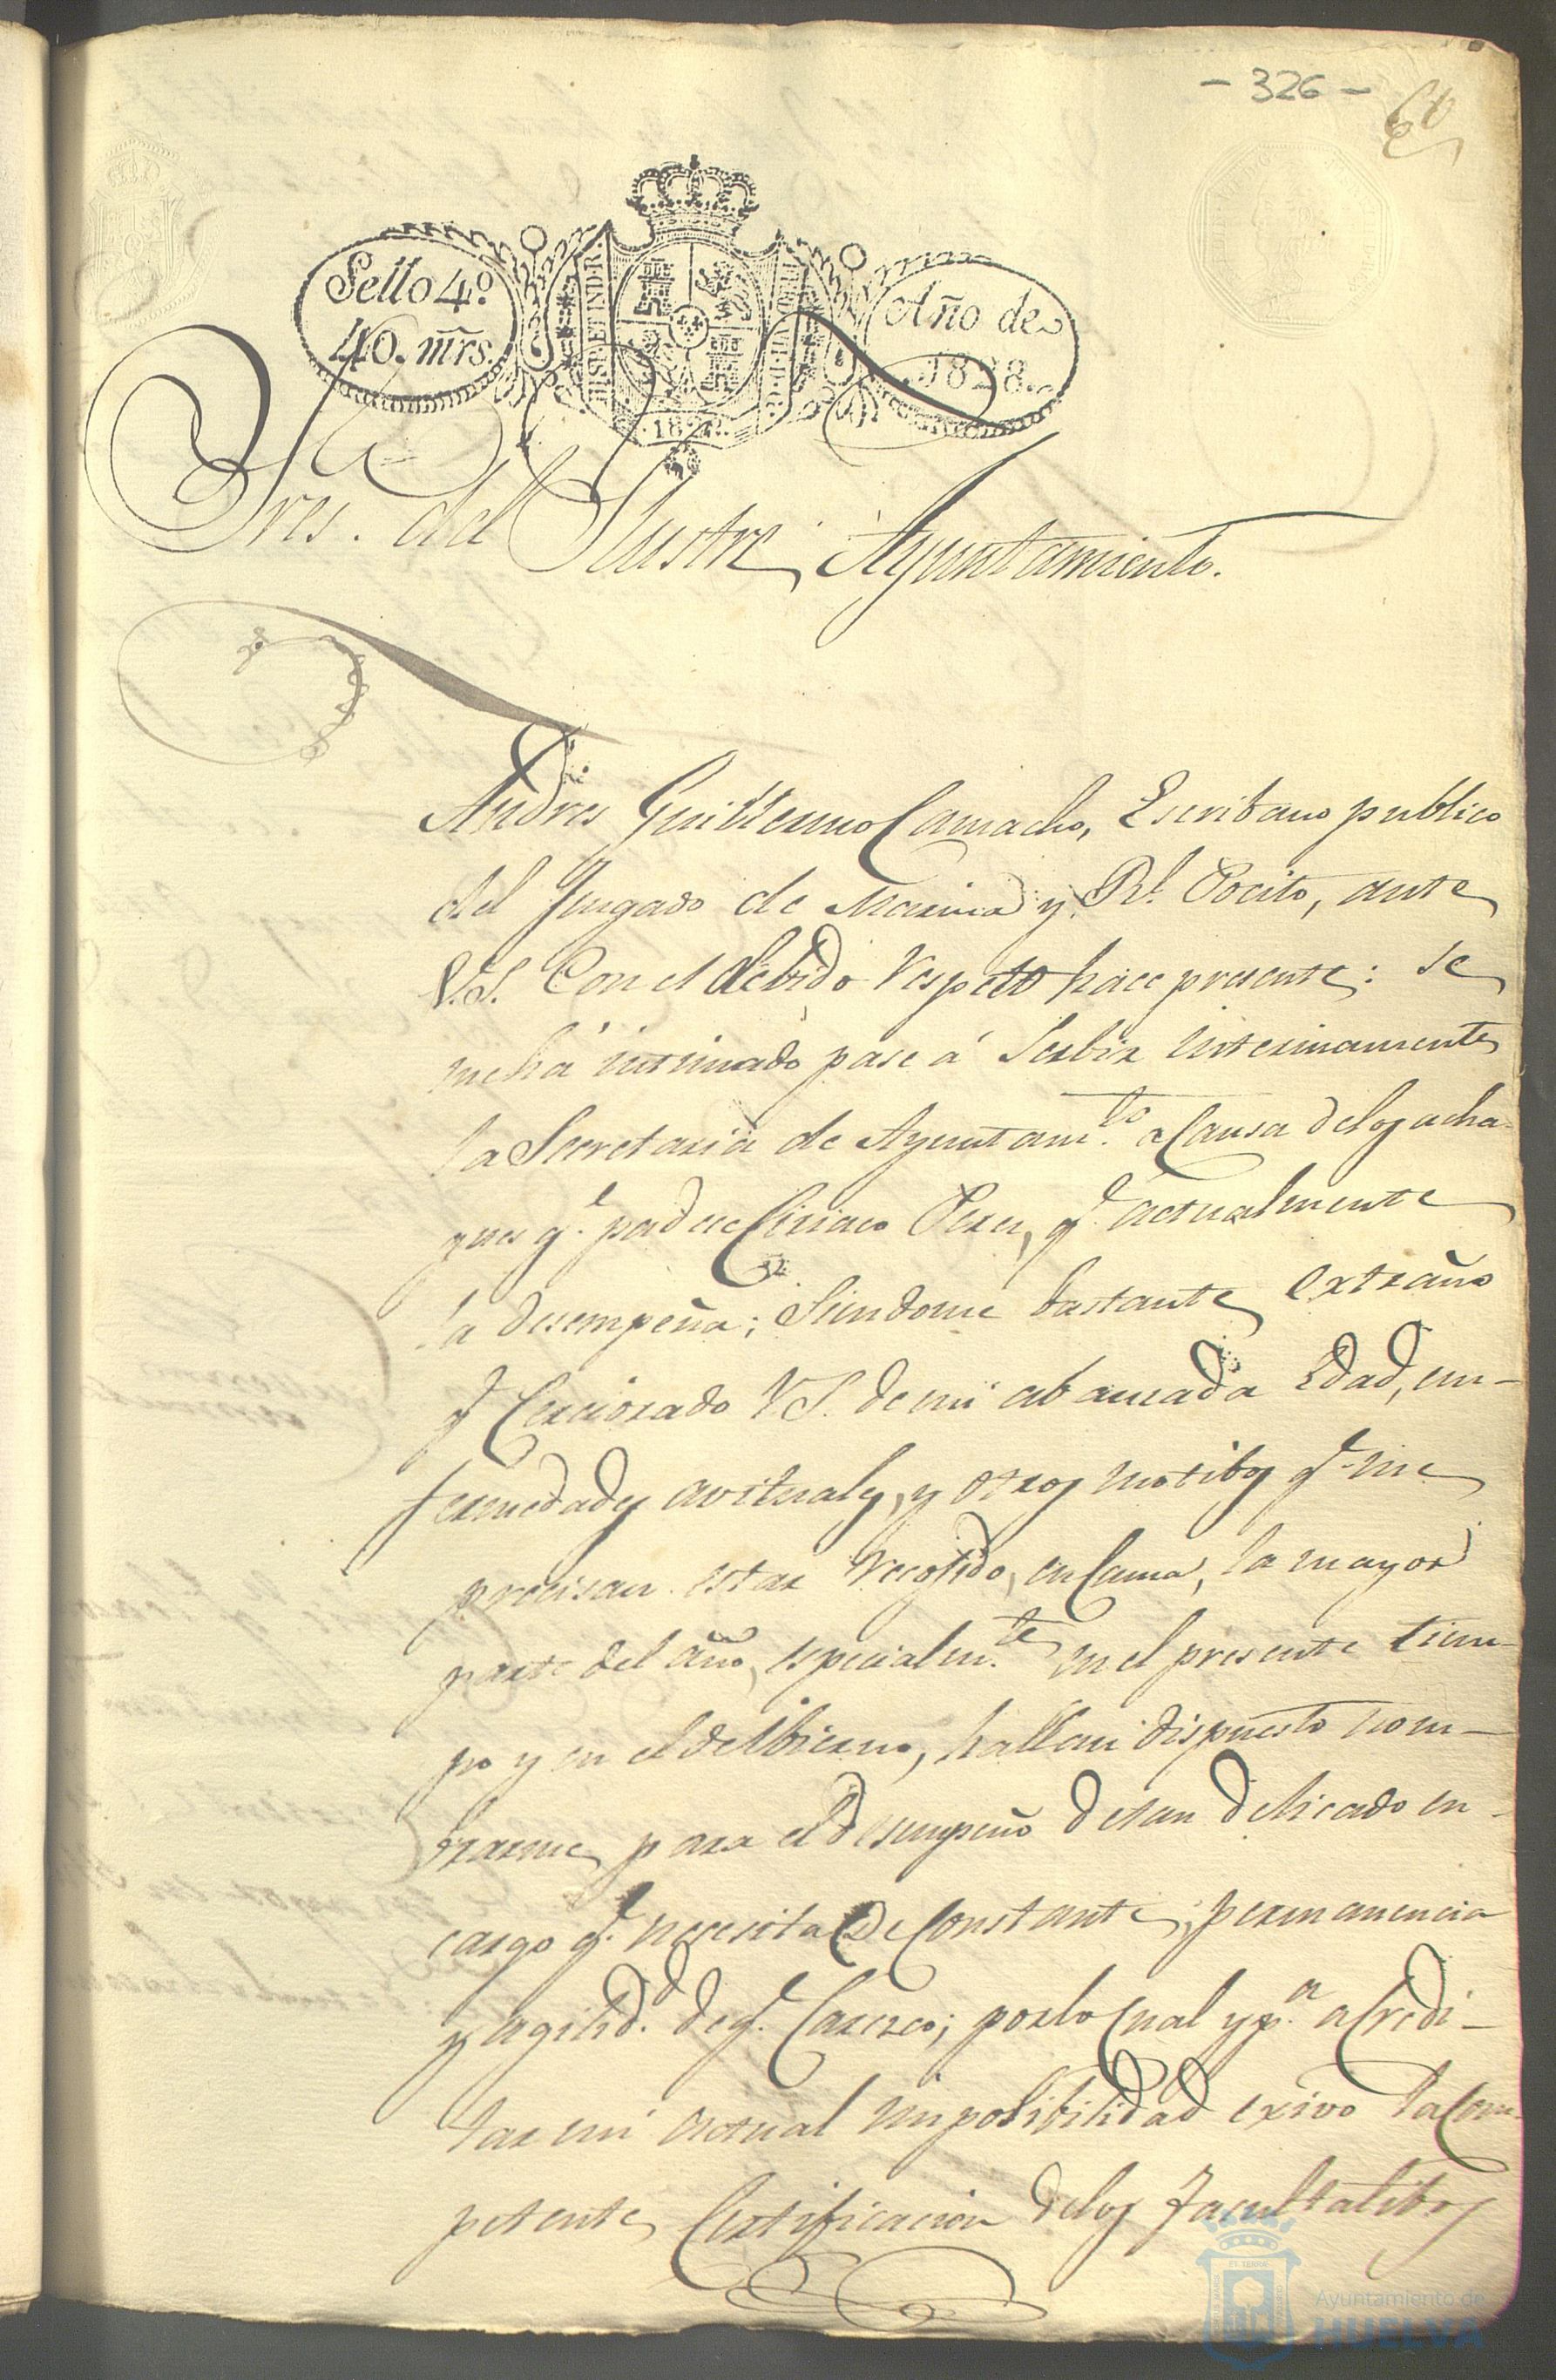 - 326 -
60
Sello 4º
40. mrs.
HISP. ET IND. R.
Año de
1828.
Sres. del Ilustre Ayuntamiento.
Andres Guillermo Camacho, Escribano publico
del Jusgado de Marina y Rl. Pocito, ante
V.S. Con el debido respeto hace presente: se
me há intimado pase á Serbir interinamente
la Secretaria de Ayuntam.to a Causa delos acha-
ques q.e padece Ciriaco Perez, q.e actualmente
la desempeña; Siendome bastante extraño
q.e Cerciorado V.S. de mi abansada Edad, en-
fermedades avituales, y otros motibos q.e me
precisan estar recojido, en Cama, la mayor
parte del año, especialm.te en el presente tiem-
po y en el de Ibierno, hallan dispuesto nom-
brarme para el desempeño de tan delicado en-
cargo q.e necesita de Constante, permanencia
y agilid.d de q.e Caresco; por lo Cual y p.a acredi-
tar mi actual imposibilidad exivo la Com-
petente Certificacion delos Facultatibos
Ayuntamiento de
HUELVA